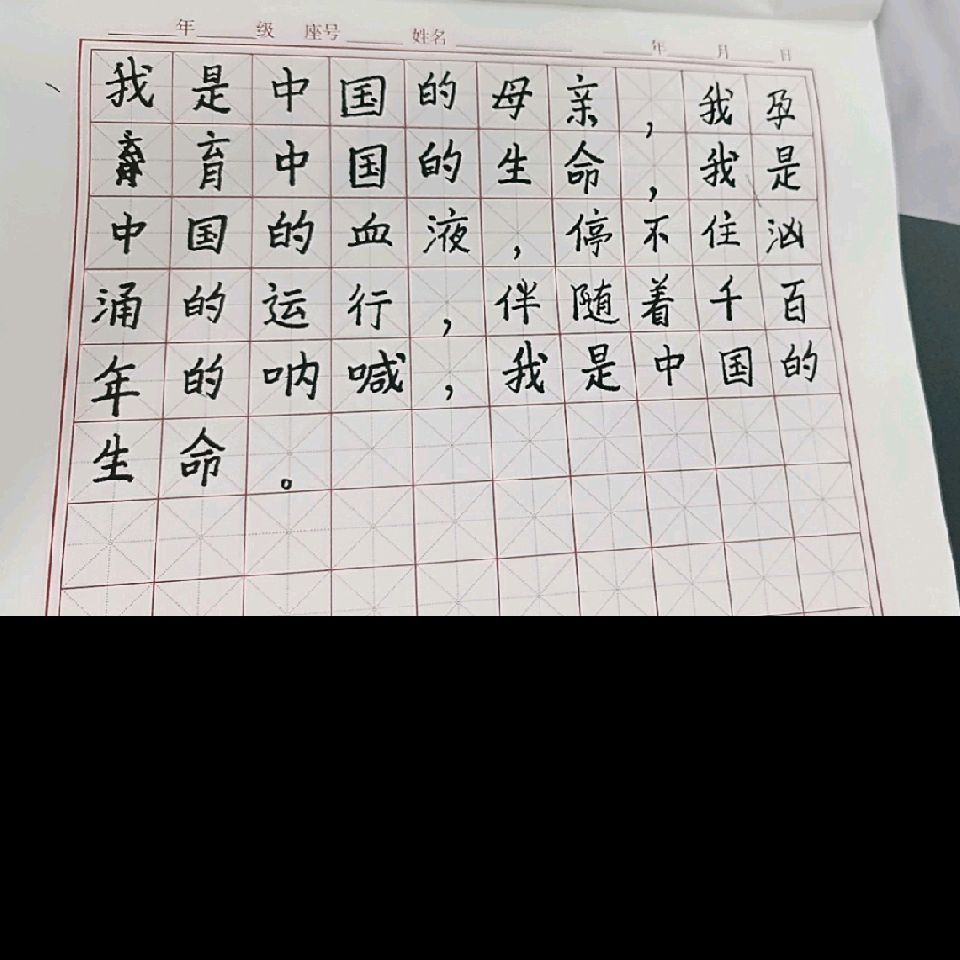 年 级 座号 姓名 年 月 日
我是中国的母亲，我孕
育中国的生命，我是
中国的血液，停不住汹
涌的运行，伴随着千百
年的呐喊，我是中国的
生命。